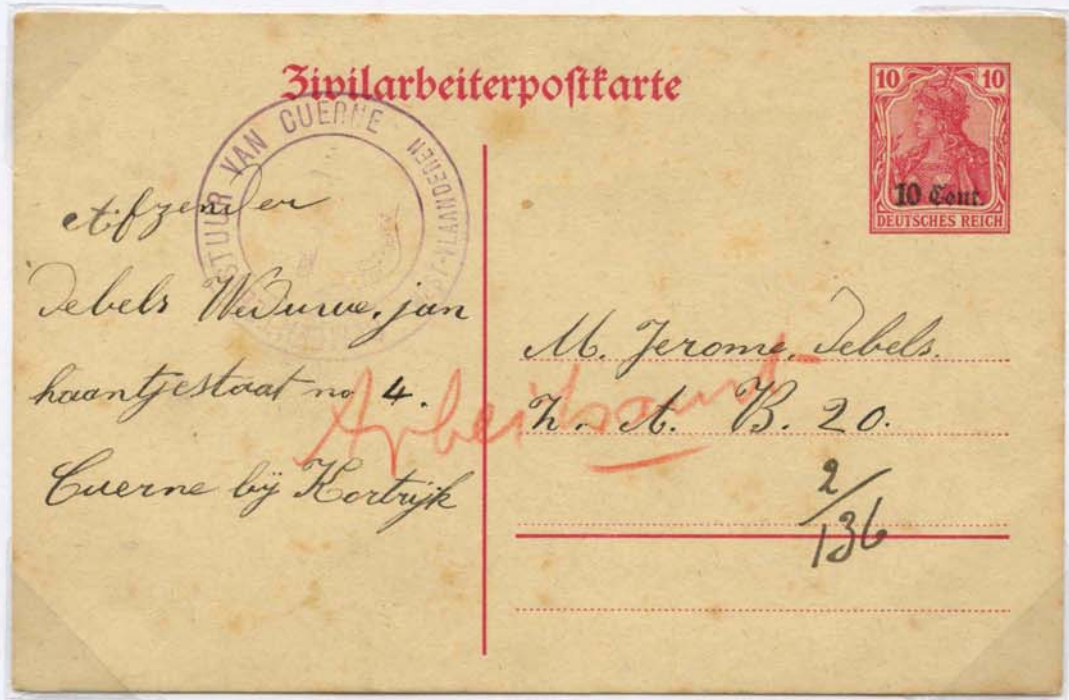 Zivilarbeiterpostkarte
10 10
10 Cent.
DEUTSCHES REICH
STUUR VAN CUERNE
WEST-VLAANDEREN
Afzender
Debels Weduwe, jan
haantjestaat no 4.
Cuerne bij Kortrijk
Arbeitsamt
M. Jerome Debels.
Z. A. B. 20.
2/136